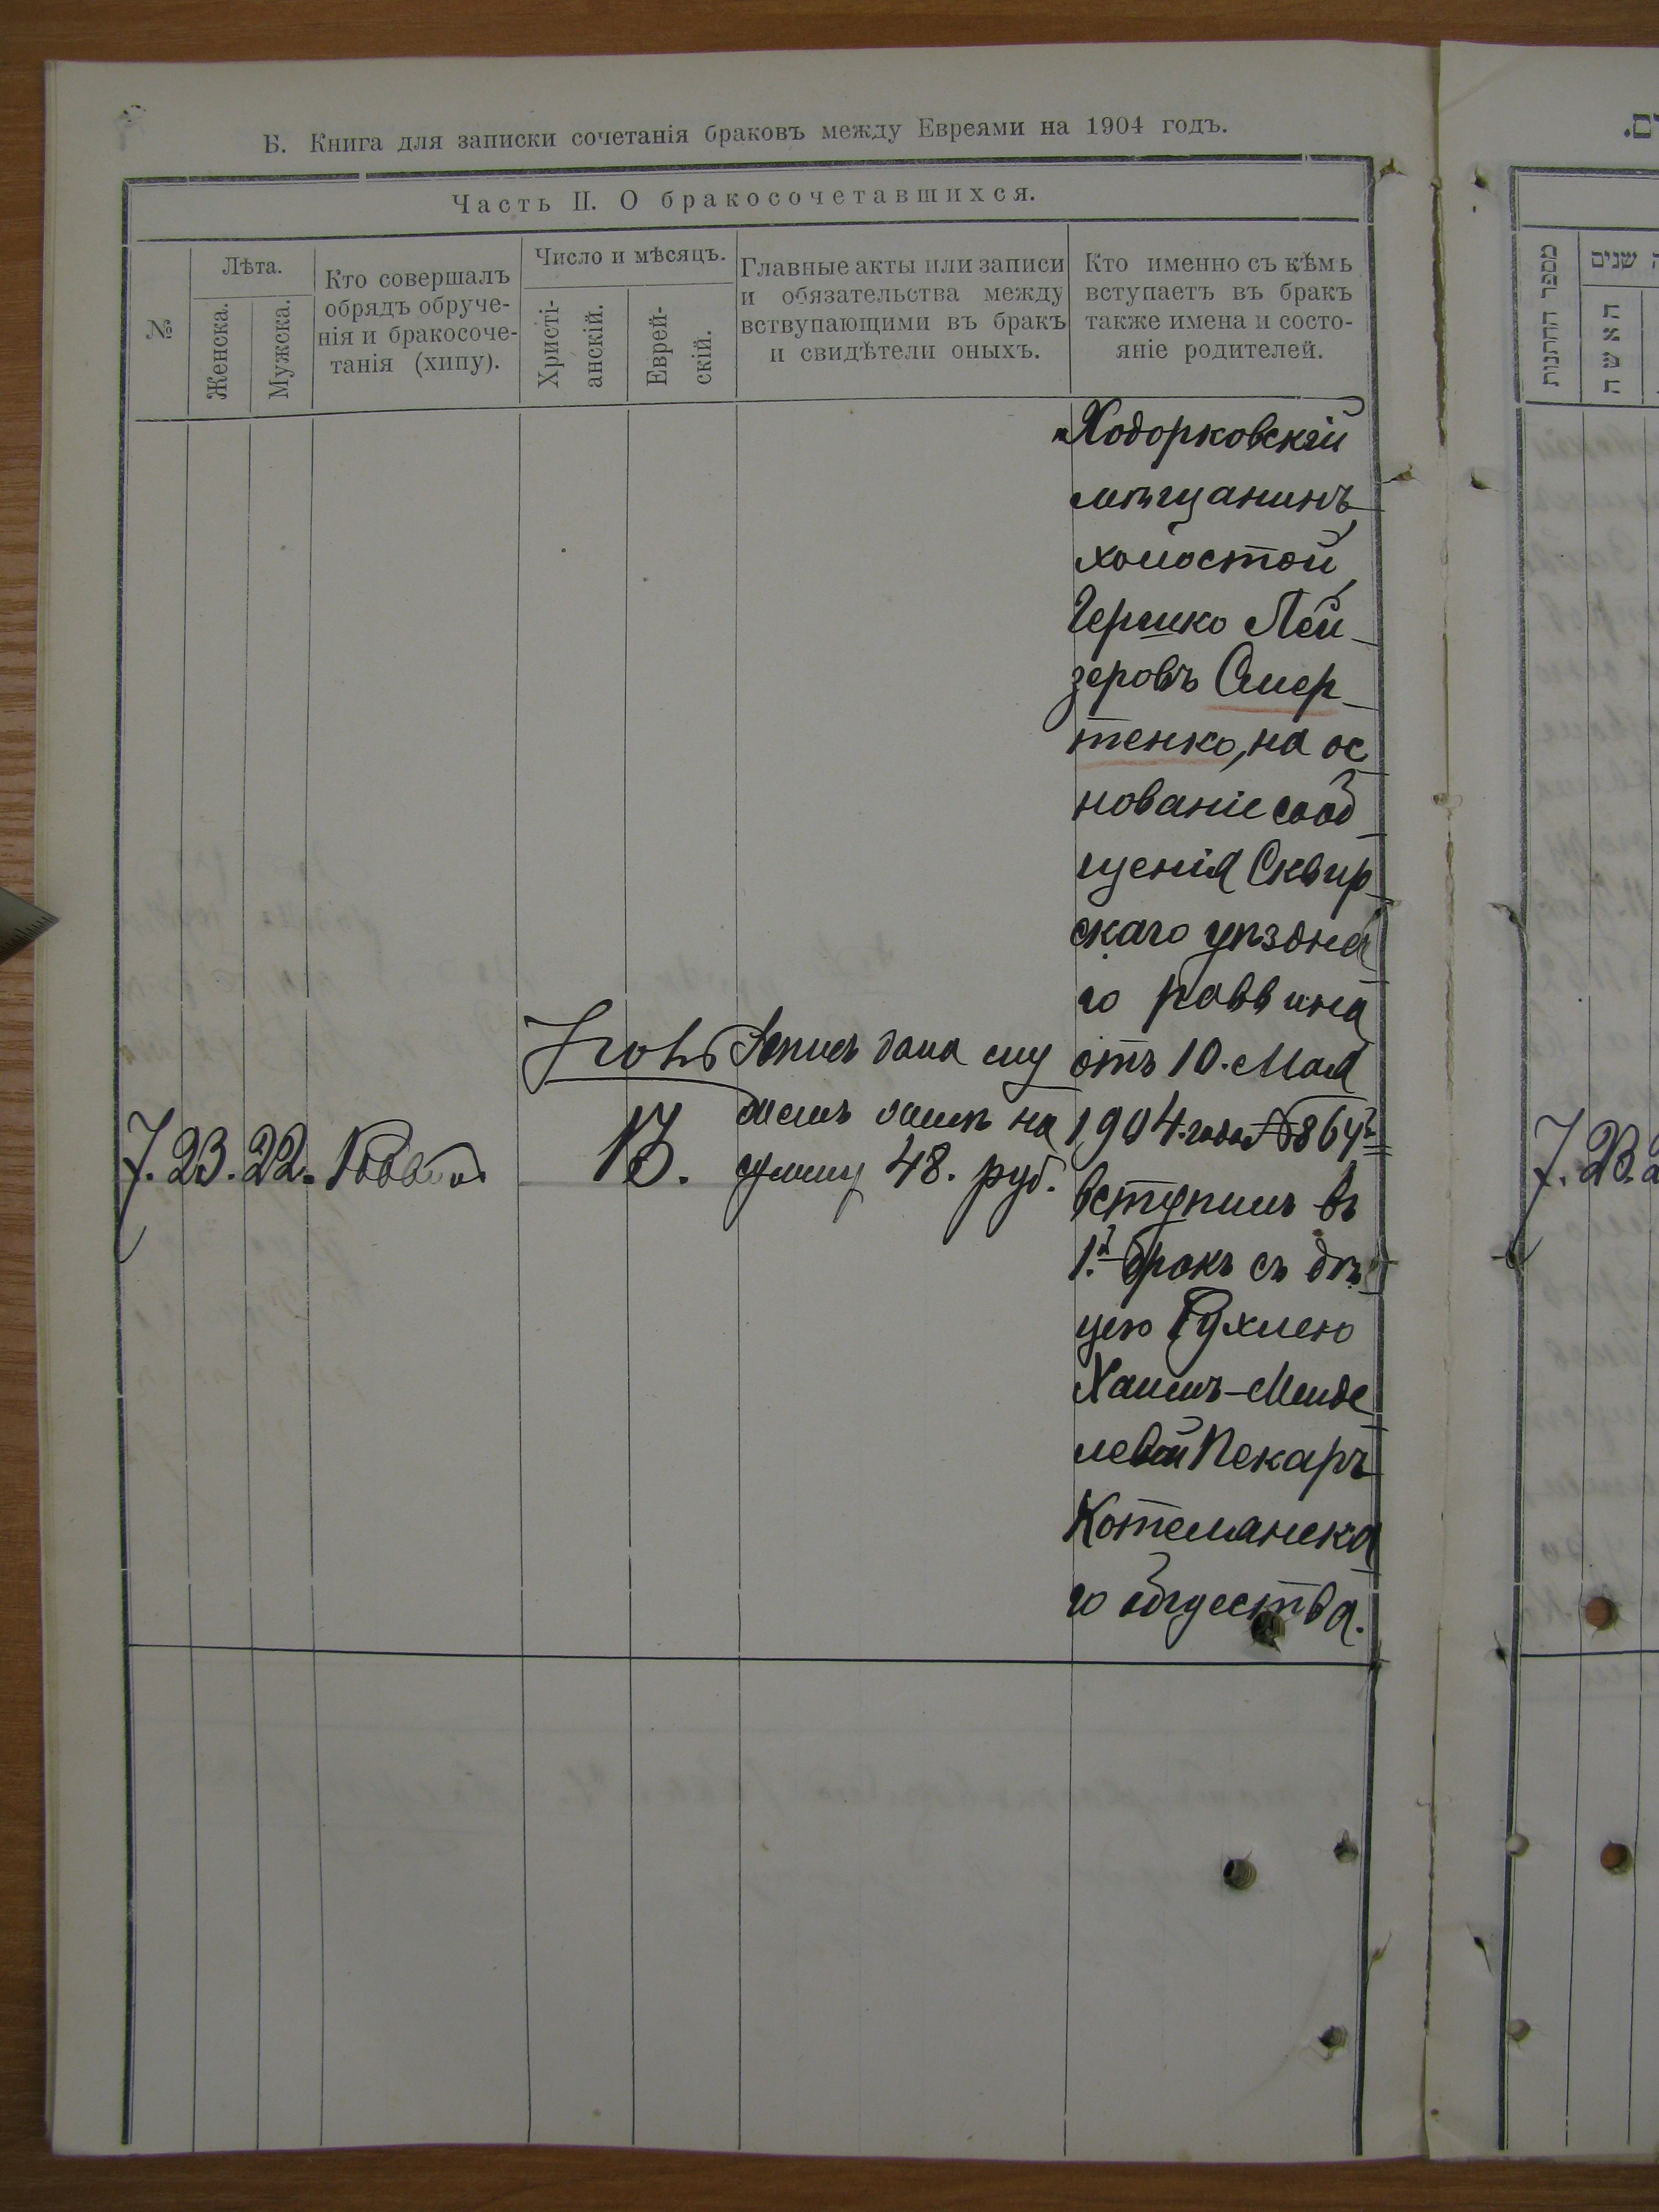 Б. Книга для записки сочетанія браковъ между Евреями на 1904 годъ.
Часть II. О бракосочетавшихся.
№
Лѣта.
Женска.
Мужска.
Кто совершалъ
обрядъ обруче-
нія и бракосоче-
танія (хипу).
Число и мѣсяцъ.
Христі-
анскій.
Еврей-
скій.
Главные акты или записи
и обязательства между
вствупающими въ бракъ
и свидѣтели оныхъ.
Кто именно съ кѣмъ
вступаетъ въ бракъ
также имена и состо-
яніе родителей.
Ходорковскій
мѣщанинъ
холостой
Гершко Лей-
зеровъ Смер-
тенко, на ос
нованіе сооб-
щенія Сквир-
скаго уѣздна
го раввина
отъ 10. Мая
1904. года №864
вступилъ въ
1.й бракъ съ дѣ
цею Рухлею
Хаимъ-Менде
левой Пекаръ
Котелянска
го общества.
7. 23. 22.
13.
Запись дана
на
сумму 48. руб.
מספר החתנות
שנים
האשה
7. 23.